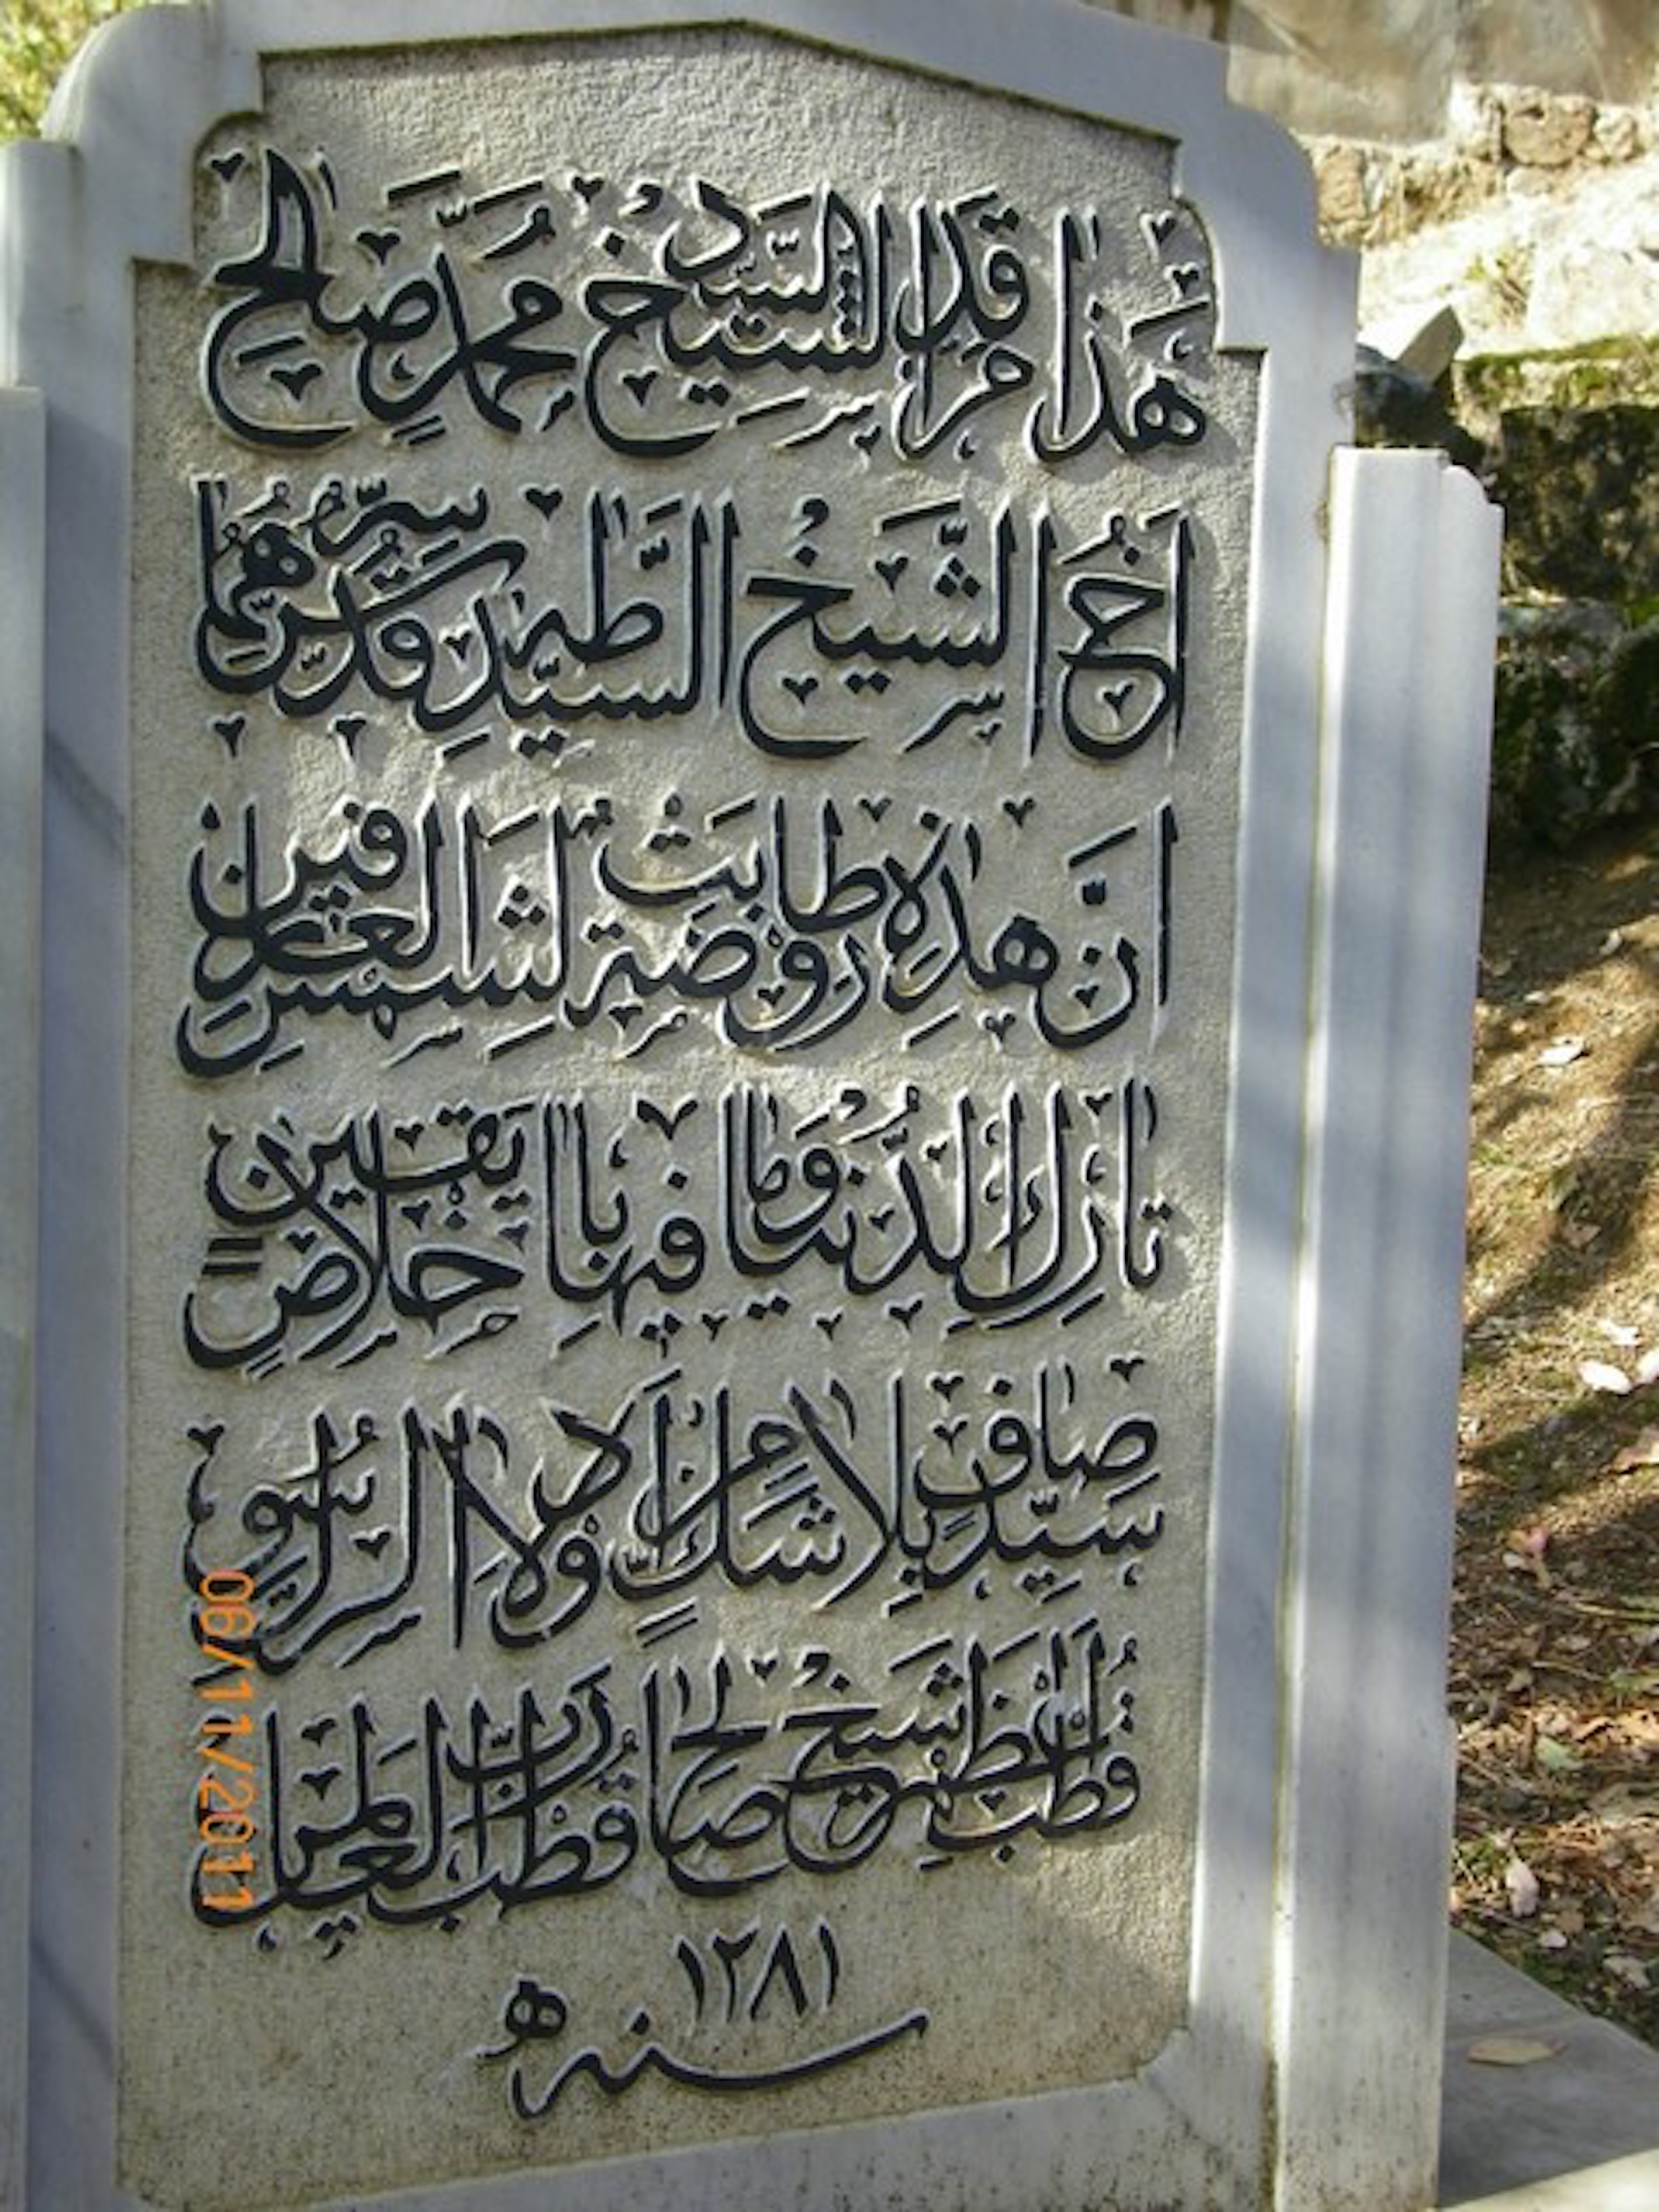 هَذَا مَرْقَدُ السَّيِّد الشَّيْخ مُحَمَّد صَالِح
اَخُ الشَّيْخ السَّيِّدِ طٰهٰ قُدِّسَ سِرُّهُمَا
اِنَّ هٰذِهِ رَوْضَةٌ طَابَتْ لِشَمْسِ الْعَارِفِين
تَارِكِ الدُّنْيَا وَمَا فِيهَا بِاِخْلَاصٍ يَقِين
سَيِّدٍ صَافٍ بِلَا شَكٍّ مِنْ اَوْلَادِ الرَّسُول
قُطْبِ اَعْظَم شَيْخ صَالِح قُطْب رَبِّ الْعَالَمِين
١٢٨١
سنه
06/11/2011